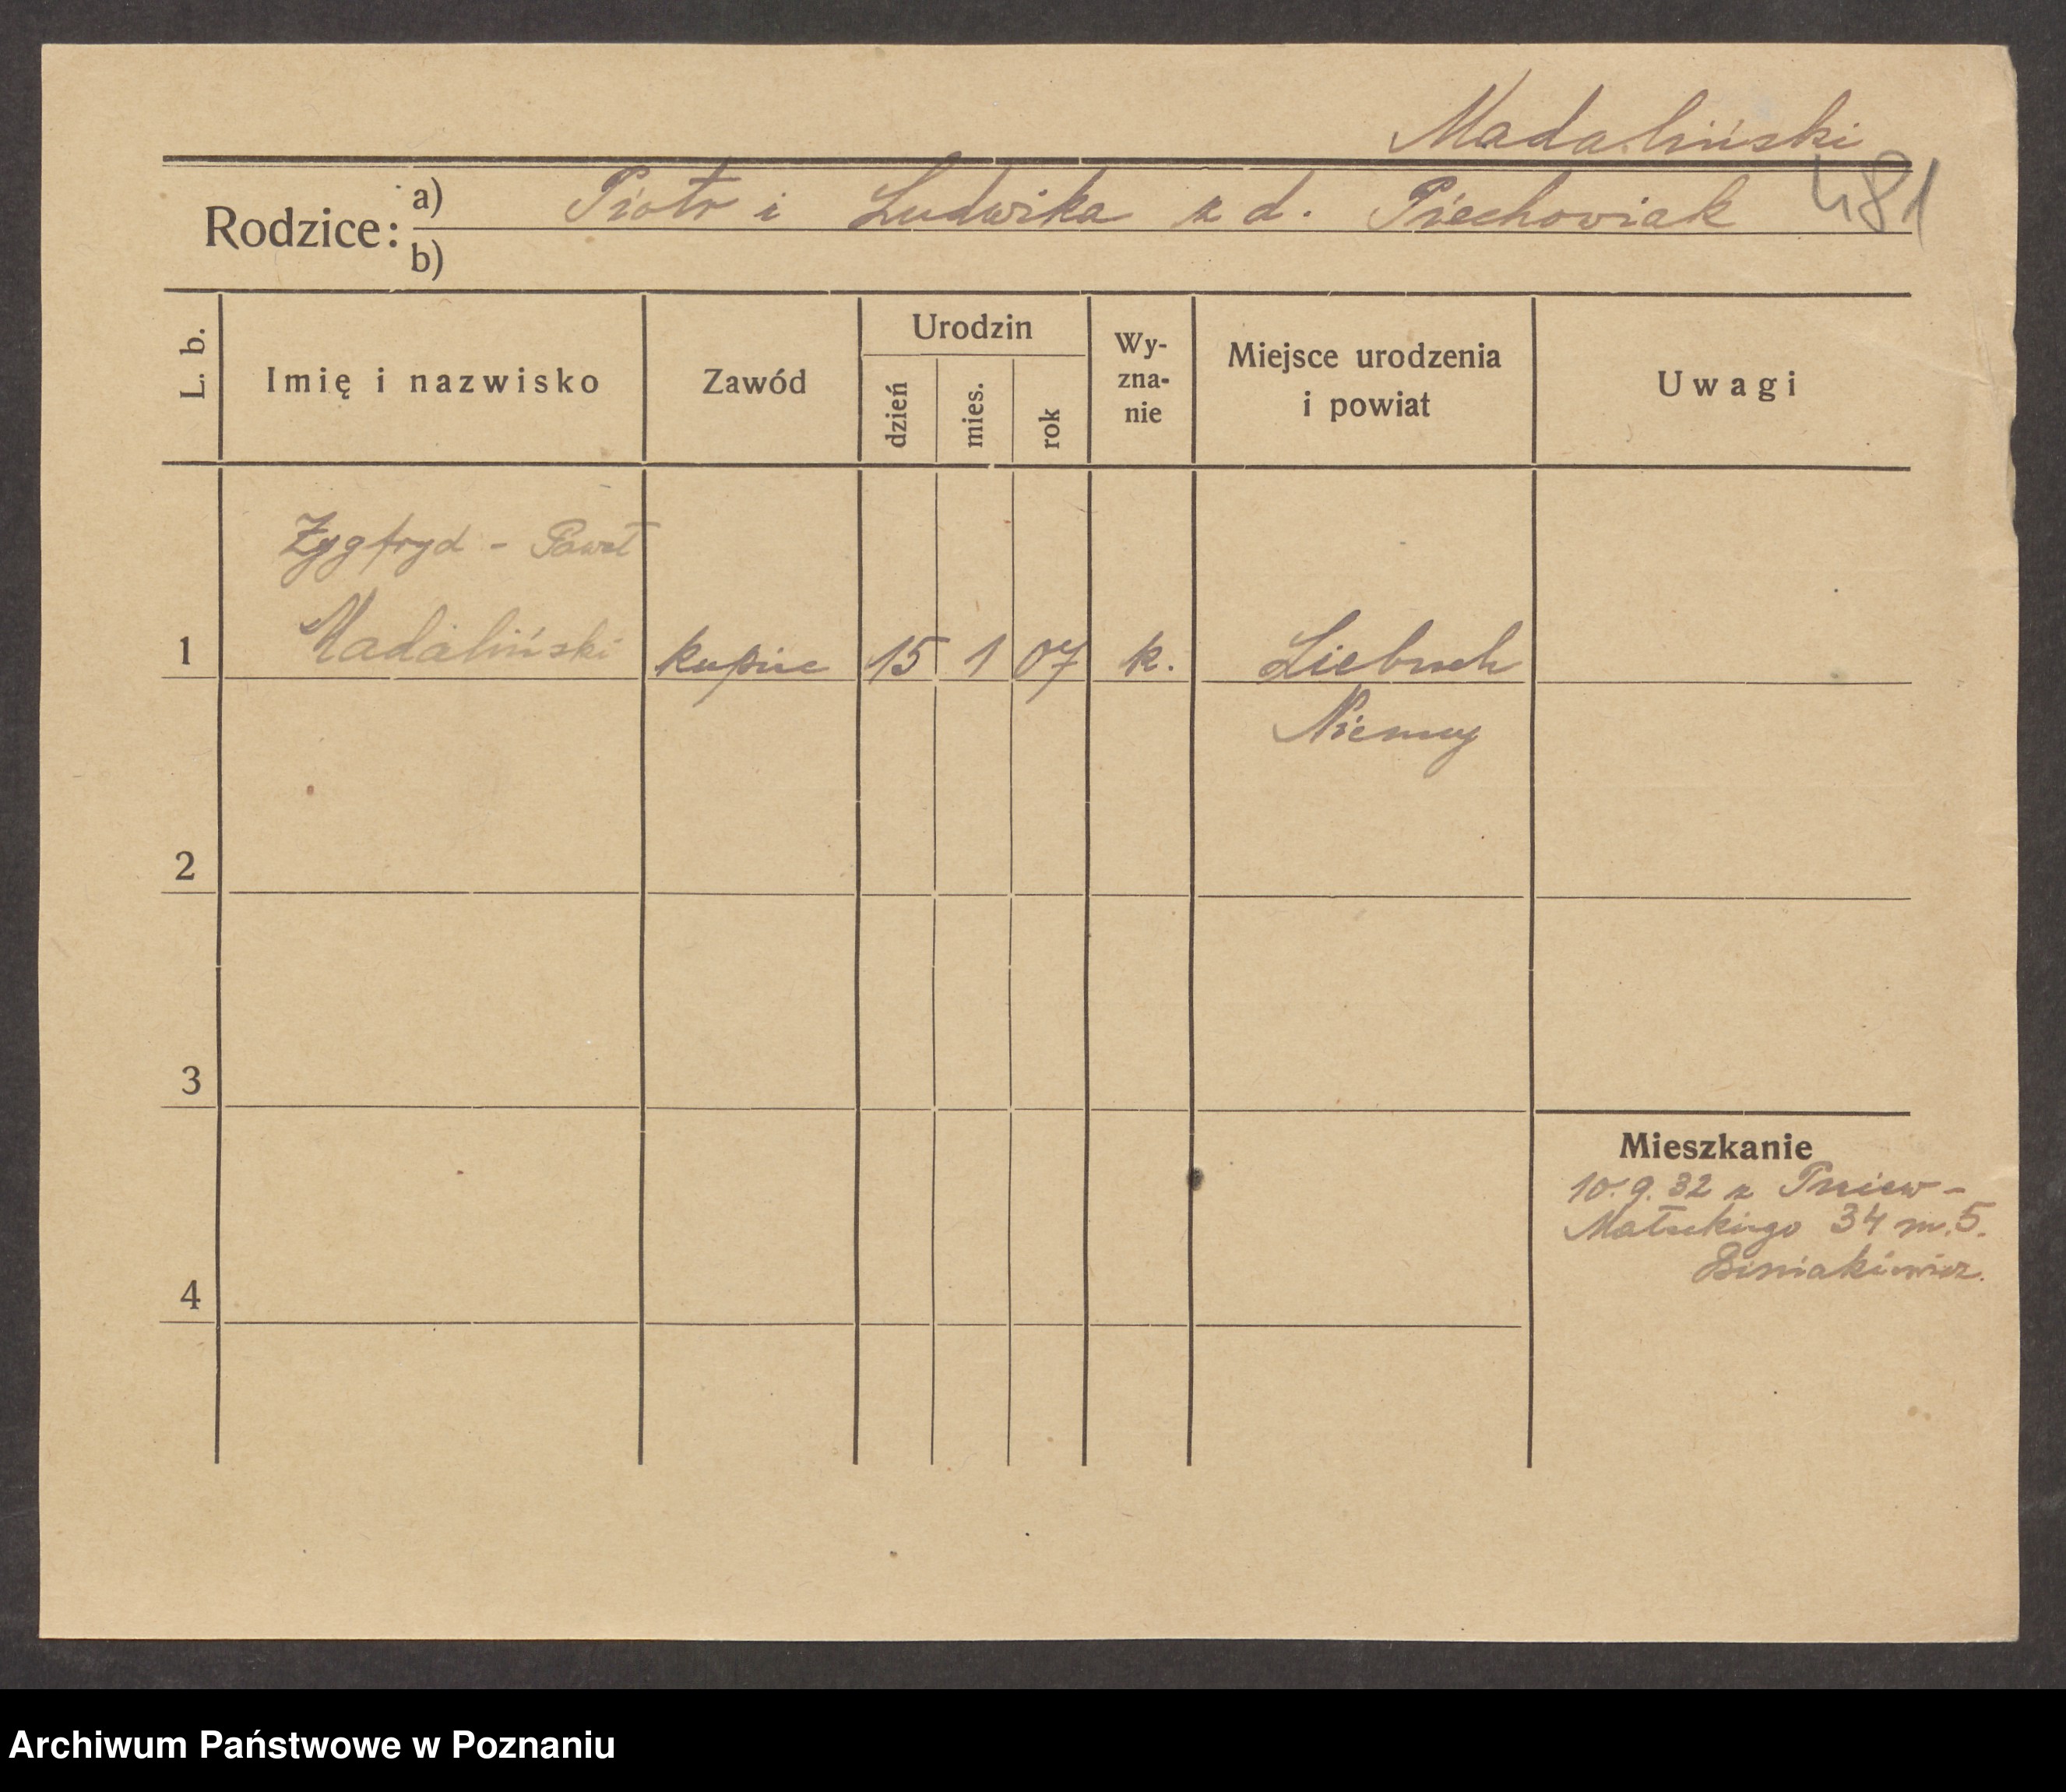 Madaliński
481
Rodzice: a) Piotr i Ludwika z d. Piechowiak
b)
L. b. Imię i nazwisko Zawód Urodzin dzień mies. rok Wy-zna-nie Miejsce urodzenia i powiat Uwagi
Zygfryd - Paweł
1 Madaliński kupiec 15 1 07 k. Liebuch
Niemcy
2
3
Mieszkanie
10.9.32 z Pniew -
Małeckiego 34 m. 5.
4
Archiwum Państwowe w Poznaniu